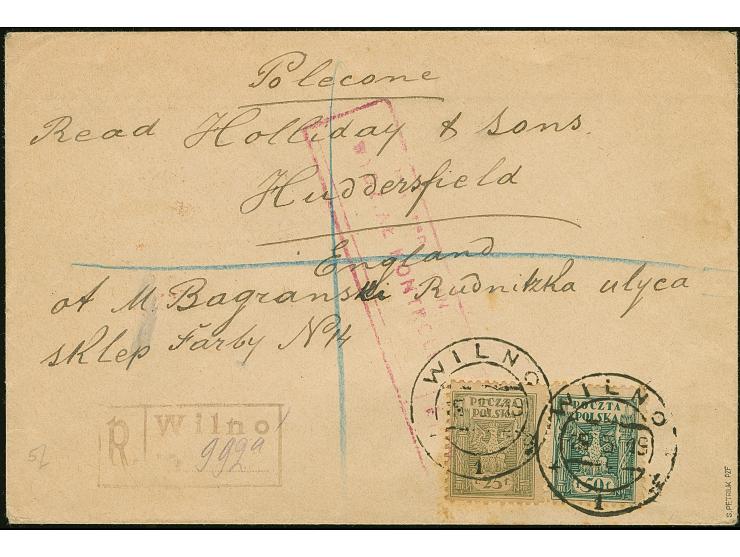 Polecone
Read Holliday & Sons.
Huddersfield
England
ot M. Bagranski Rudnitzka ulyca
sklep Farby N 4
WILNO
1
WILNO
19
1
POCZTA
POLSKA
25 f
POCZTA
POLSKA
50 f
R
Wilno
992a
S. PETRIUK PZF